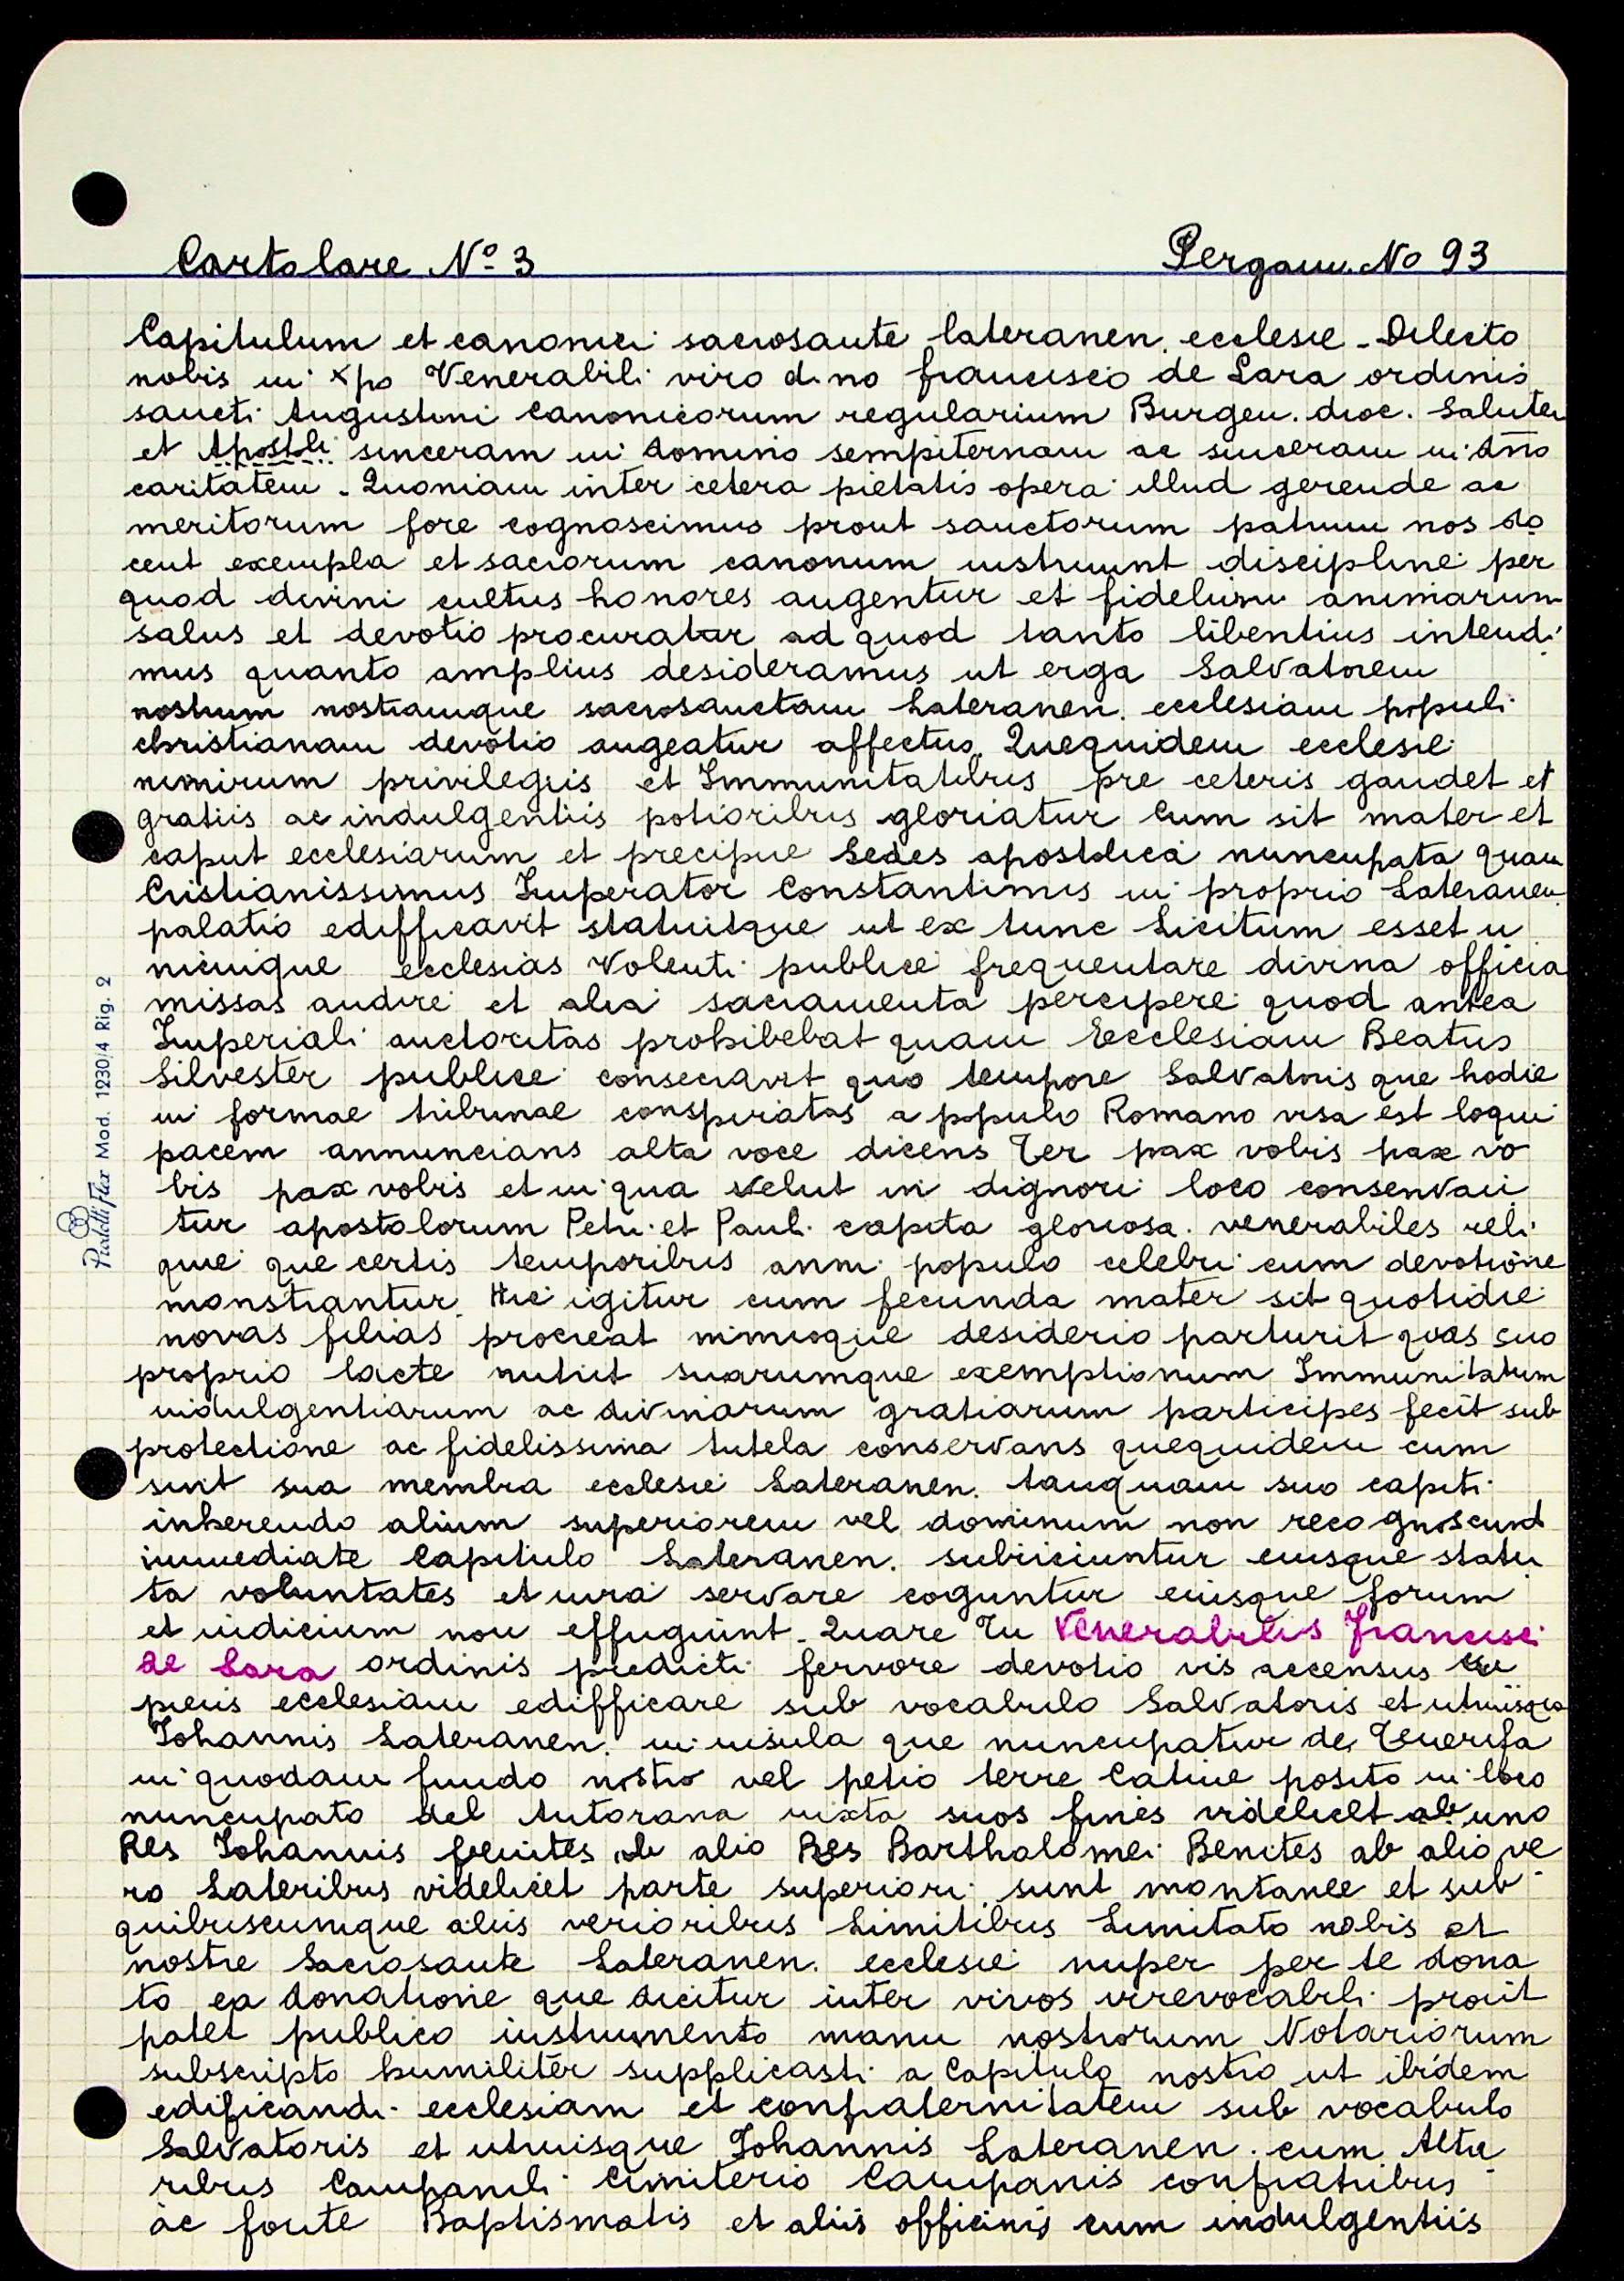 Cartolare Nº 3
Pergam. No 93
Capitulum et canonici sacrosante lateranen. ecclesie - Dilecto
nobis in xpo Venerabili viro dno francisco de Lara ordinis
sancti Augustini Canonicorum regularium Burgen. dioc. Salutem
et Apostoli sinceram in domino sempiternam ac sinceram in dno
caritatem. Quoniam inter cetera pietatis opera illud gerende ac
meritorum fore cognoscimus prout sanctorum patrum nos do
cent exempla et sacrorum canonum instruunt discipline per
quod divini cultus honores augentur et fidelium animarum
salus et devotio procuratur ad quod tanto libentius intendi
mus quanto amplius desideramus ut erga Salvatorem
nostrum nostramque sacrosanctam Lateranen. ecclesiam populi
christianam devotio augeatur affectus. Quequidem ecclesie
nimirum privilegiis et Immunitatibus pre ceteris gaudet et
gratiis ac indulgentiis potioribus gloriatur Cum sit mater et
caput ecclesiarum et precipue Sedes apostolica nuncupata quam
Cristianissimus Imperator Constantinus in proprio Lateranen.
palatio edifficavit statuitque ut ex tunc Licitum esset u
nicuique ecclesias Volenti publice frequentare divina officia
missas audire et alia sacramenta percipere quod antea
Imperiali auctoritas prohibebat quam Ecclesiam Beatus
Silvester publice consecravit quo tempore Salvatoris que hodie
in formae tribunae conspiratas a populo Romano visa est loqui
pacem annuncians alta voce dicens Ter pax vobis pax vo
bis pax vobis et in qua velut in dignori loco conservan
tur apostolorum Petri et Pauli capita gloriosa. venerabiles reli
quie que certis temporibus anni populo celebri cum devotione
monstrantur. Hic igitur cum fecunda mater sit quotidie
novas filias procreat nimioque desiderio parturit quas suo
proprio lacte nutrit suarumque exemptionum Immunitatum
indulgentiarum ac divinarum gratiarum participes fecit sub
protectione ac fidelissima tutela conservans quequidem cum
sint sua membra ecclesie Lateranen. tanquam suo capiti
inherendo alium superiorem vel dominum non recognoscunt
immediate Capitulo Lateranen. subiiciuntur eiusque statu
ta voluntates et iura servare coguntur eiusque forum
et iudicium non effugiunt. Quare Tu Venerabilis Francisci
de Lara ordinis predicti fervore devotio vis accensus cu
piens ecclesiam edifficare sub vocabulo Salvatoris et utriusque
Johannis Lateranen. in insula que nuncupatur de Tenerifa
in quodam fundo nostro vel petio terre Catine posito in loco
nuncupato del Autorana iuxta suos fines videlicet ab uno
Res Johannis benites ab alio Res Bartholomei Benites ab alio ve
ro Lateribus videlicet parte superiori sunt montanee et sub
quibuscumque aliis verioribus Limitibus Limitato nobis et
nostre Sacrosante Lateranen. ecclesie nuper per te dona
to ea donatione que dicitur inter vivos irrevocabili prout
patet publico instrumento manu nostrorum Notariorum
subscripto humiliter supplicasti a Capitulo nostro ut ibidem
edificandi ecclesiam et confraternitatem sub vocabulo
Salvatoris et utriusque Johannis Lateranen. cum Alta
ribus Campanili Cimiterio Campanis confratribus
ac fonte Baptismatis et aliis officinis cum indulgentiis
Mod. 1230/4 Rig. 2